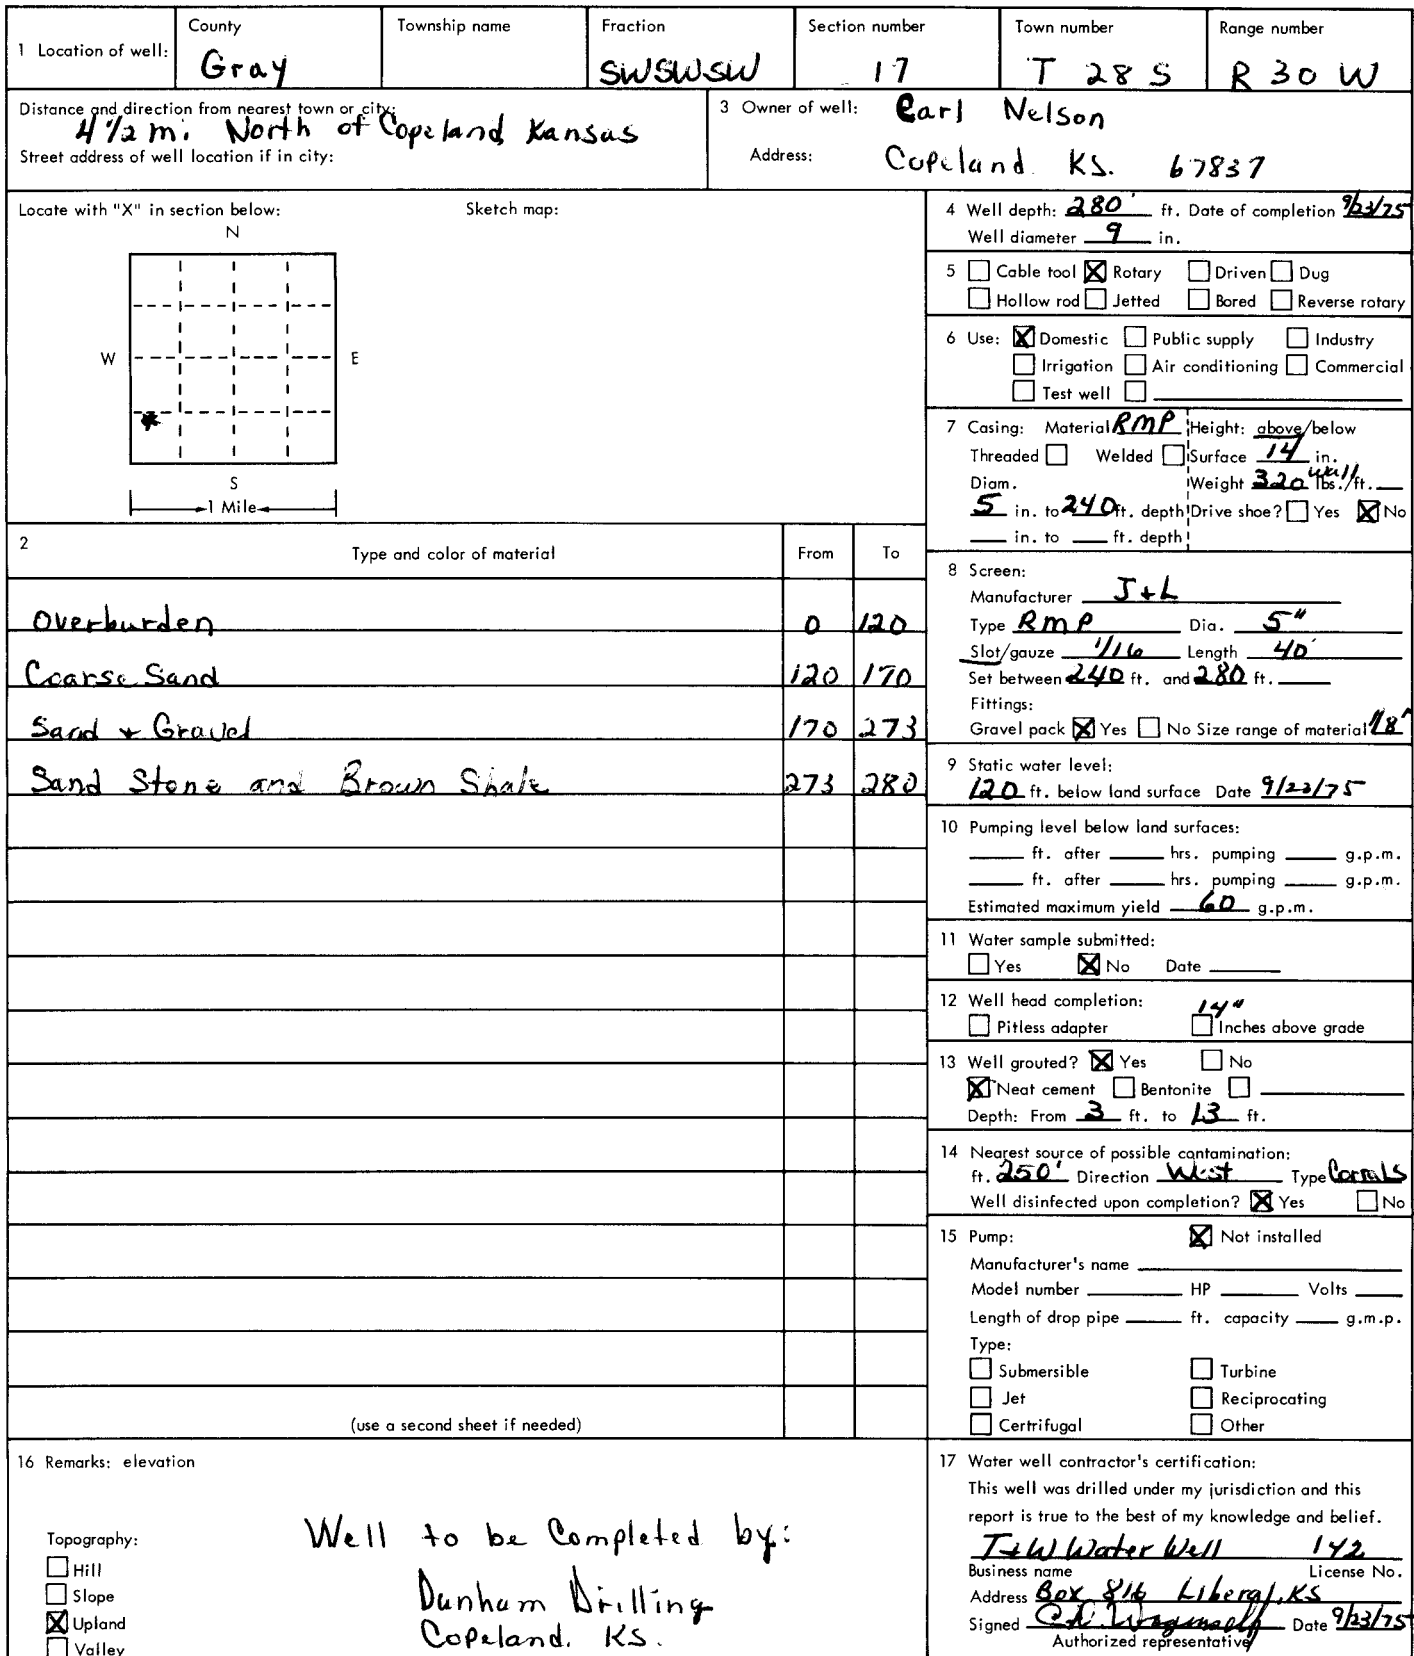 1 Location of well:
County
Gray
Township name
Fraction
SWSWSW
Section number
17
Town number
T 28 S
Range number
R 30 W
Distance and direction from nearest town or city:
4 1/2 mi. North of Copeland Kansas
Street address of well location if in city:
3 Owner of well: Carl Nelson
Address: Copeland KS. 67837
Locate with "X" in section below:
Sketch map:
N
W
E
S
1 Mile
2
Type and color of material
From
To
Overburden 0 120
Coarse Sand 120 170
Sand + Gravel 170 273
Sand Stone and Brown Shale 273 280
(use a second sheet if needed)
4 Well depth: 280' ft. Date of completion 9/23/75
Well diameter 9 in.
5 Cable tool Rotary Driven Dug
Hollow rod Jetted Bored Reverse rotary
6 Use: Domestic Public supply Industry
Irrigation Air conditioning Commercial
Test well
7 Casing: Material RMP Height: above/below
Threaded Welded Surface 14 in.
Diam. Weight 320 wall lbs./ft.
5 in. to 240 ft. depth Drive shoe? Yes No
in. to ft. depth
8 Screen:
Manufacturer J+L
Type RMP Dia. 5"
Slot/gauze 1/16 Length 40'
Set between 240 ft. and 280 ft.
Fittings:
Gravel pack Yes No Size range of material 1/8"
9 Static water level:
120 ft. below land surface Date 9/23/75
10 Pumping level below land surfaces:
ft. after hrs. pumping g.p.m.
ft. after hrs. pumping g.p.m.
Estimated maximum yield 60 g.p.m.
11 Water sample submitted:
Yes No Date
12 Well head completion: 14"
Pitless adapter Inches above grade
13 Well grouted? Yes No
Neat cement Bentonite
Depth: From 3 ft. to 13 ft.
14 Nearest source of possible contamination:
ft. 250' Direction West Type Corrals
Well disinfected upon completion? Yes No
15 Pump: Not installed
Manufacturer's name
Model number HP Volts
Length of drop pipe ft. capacity g.m.p.
Type:
Submersible Turbine
Jet Reciprocating
Certrifugal Other
16 Remarks: elevation
Topography:
Hill
Slope
Upland
Valley
Well to be Completed by:
Dunham Drilling
Copeland, KS.
17 Water well contractor's certification:
This well was drilled under my jurisdiction and this
report is true to the best of my knowledge and belief.
T+W Water Well 142
Business name License No.
Address Box 816 Liberal, KS
Signed Date 9/23/75
Authorized representative